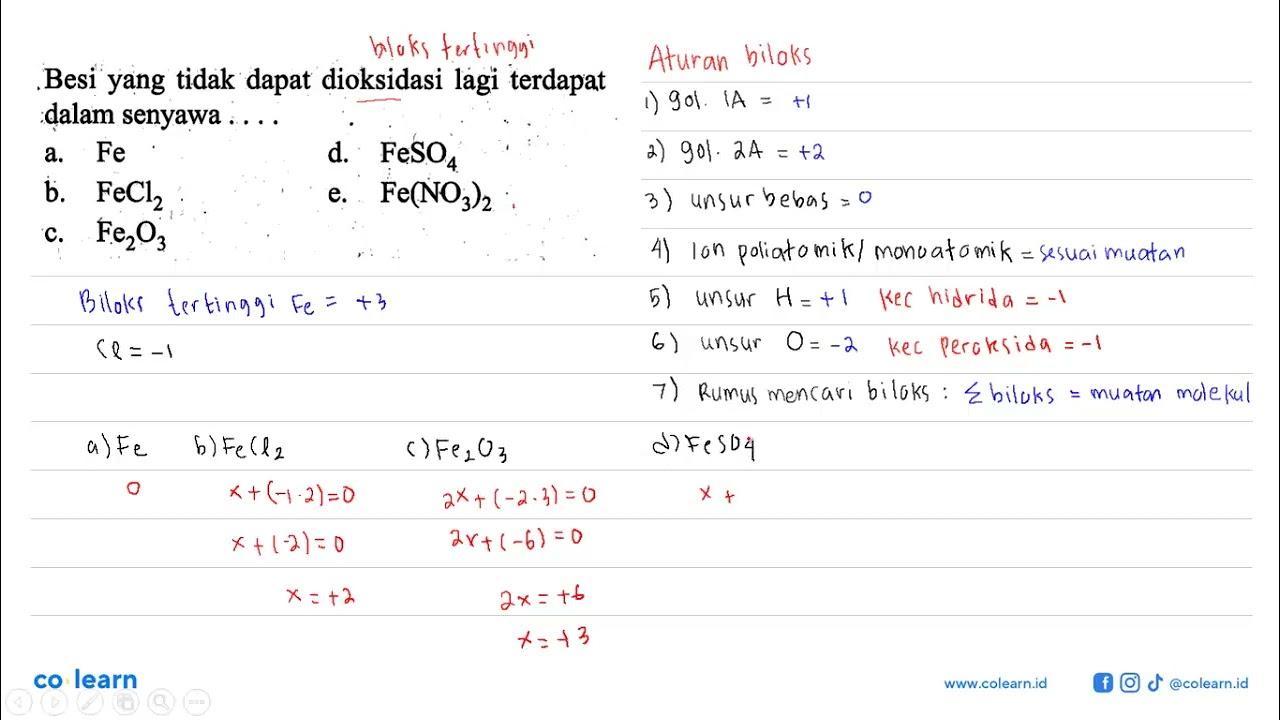 biloks tertinggi
Besi yang tidak dapat dioksidasi lagi terdapat
dalam senyawa . . . .
a. Fe
b. FeCl₂
c. Fe₂O₃
d. FeSO₄
e. Fe(NO₃)₂
Biloks tertinggi Fe = +3
Cl = -1
Aturan biloks
1) gol. 1A = +1
2) gol. 2A = +2
3) unsur bebas = 0
4) Ion poliatomik/monoatomik = sesuai muatan
5) unsur H = +1 kec hidrida = -1
6) unsur O = -2 kec peroksida = -1
7) Rumus mencari biloks : Σ biloks = muatan molekul
a) Fe
0
b) FeCl₂
x + (-1·2) = 0
x + (-2) = 0
x = +2
c) Fe₂O₃
2x + (-2·3) = 0
2x + (-6) = 0
2x = +6
x = +3
d) FeSO₄
x +
co learn
www.colearn.id
@colearn.id